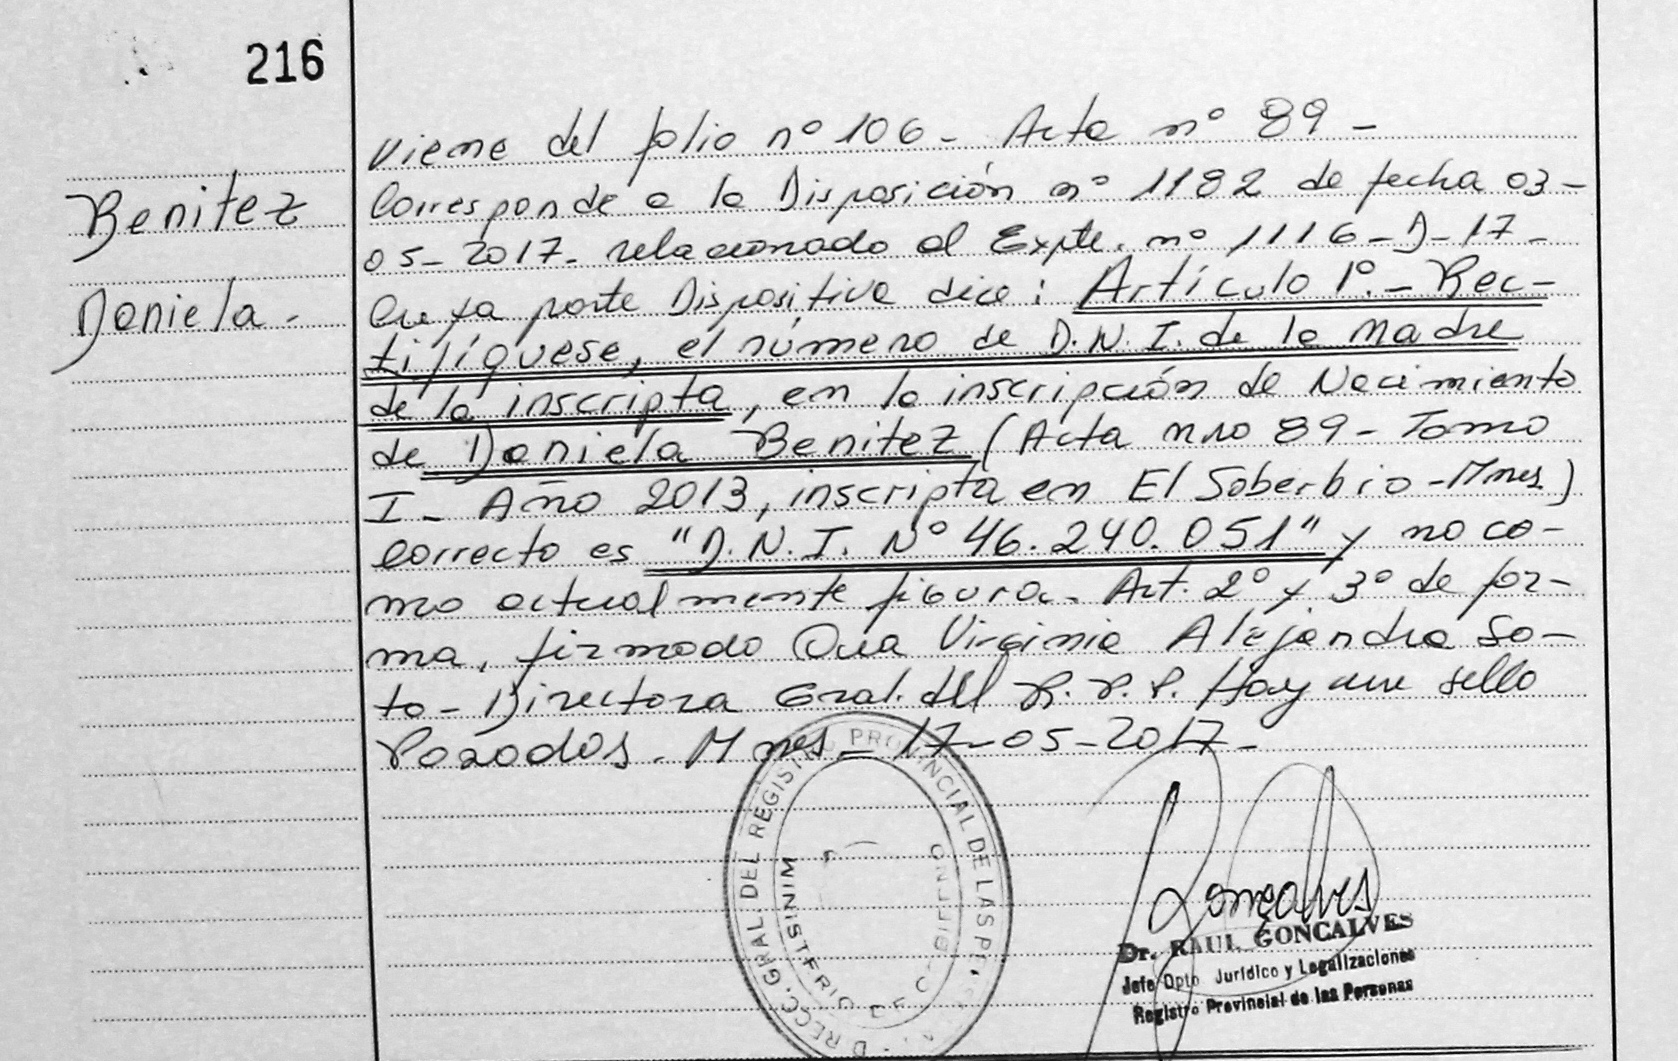 216
Benitez
Daniela.
Viene del folio nº 106 - Acta nº 89 -
Corresponde a la Disposición nº 1182 de fecha 03-
05-2017- relacionado al Expte. nº 1116-D-17-
Cuya parte Dispositiva dice: Artículo 1º.- Rec-
tifíquese, el número de D.N.I. de la madre
de la inscripta, en la inscripción de Nacimiento
de Daniela Benitez (Acta nro 89 - Tomo
I - Año 2013, inscripta en El Soberbio - Mnes)
correcto es "D.N.I. Nº 46.240.051" y no co-
mo actualmente figura. Art. 2º y 3º de for-
ma, firmado Dra Virginia Alejandra So-
to - Directora Gral. del R.P.P. Hay un sello
Posadas. Mnes - 17-05-2017-
DIRECC. GRAL. DEL REGISTRO PROVINCIAL DE LAS PE
MINISTERIO DE GOBIERNO
Goncalves
Dr. RAUL GONCALVES
Jefe Dpto Jurídico y Legalizaciones
Registro Provincial de las Personas